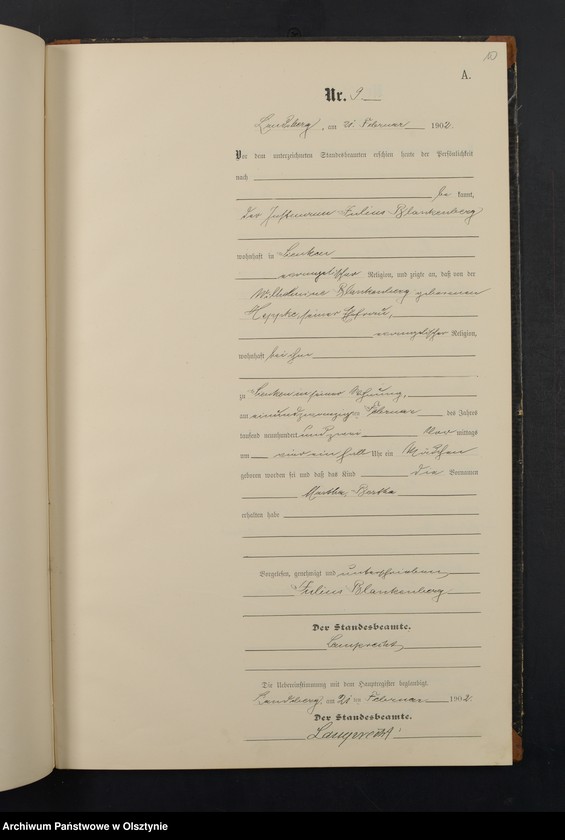 10
A.
Nr. 9
Landsberg, am 21. Februar 1902.
Vor dem unterzeichneten Standesbeamten erschien heute der Persönlichkeit
nach
be kannt,
der Instmann Julius Blankenberg
wohnhaft in
evangelischer Religion, und zeigte an, daß von der
Wilhelmine Blankenberg geborenen
Heppke, seiner Ehefrau,
evangelischer Religion,
wohnhaft bei ihm
zu in seiner Wohnung,
am einundzwanzigten Februar des Jahres
tausend neunhundert und zwei Vor mittags
um vier ein halb Uhr ein Mädchen
geboren worden sei und daß das Kind die Vornamen
Martha Bertha
erhalten habe
Vorgelesen, genehmigt und unterschrieben
Julius Blankenberg
Der Standesbeamte.
Lamprecht
Die Uebereinstimmung mit dem Hauptregister beglaubigt.
Landsberg, am 21 ten Februar 1902.
Der Standesbeamte.
Lamprecht
Archiwum Państwowe w Olsztynie